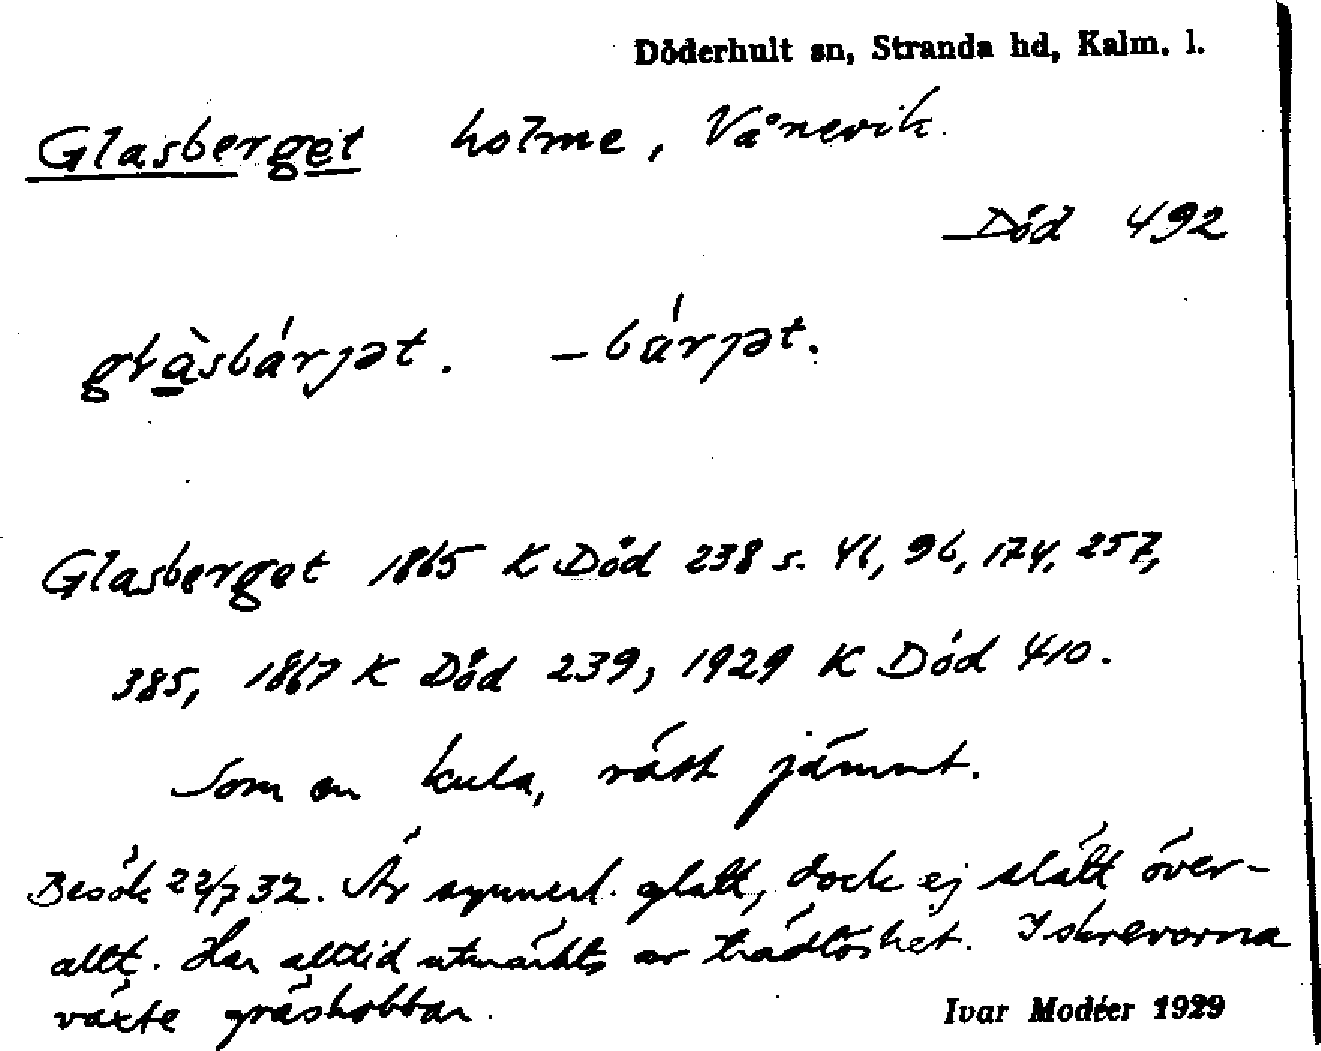 Döderhult sn, Stranda hd, Kalm. l.
Glasberget holme, Vånevik.
Död 492
glàsbárjət. – bárjət.
Glasberget 1865 K Död 238 s. 46, 96, 174, 257,
385, 1867 K Död 239, 1929 K Död 410.
Som en kula, rätt jämnt.
Besök 22/7 32. Är synnerl. glatt, dock ej slätt över-
allt. Har alltid utmärkts av trädlöshet. I skrevorna
växte gräshobbar.
Ivar Modéer 1929